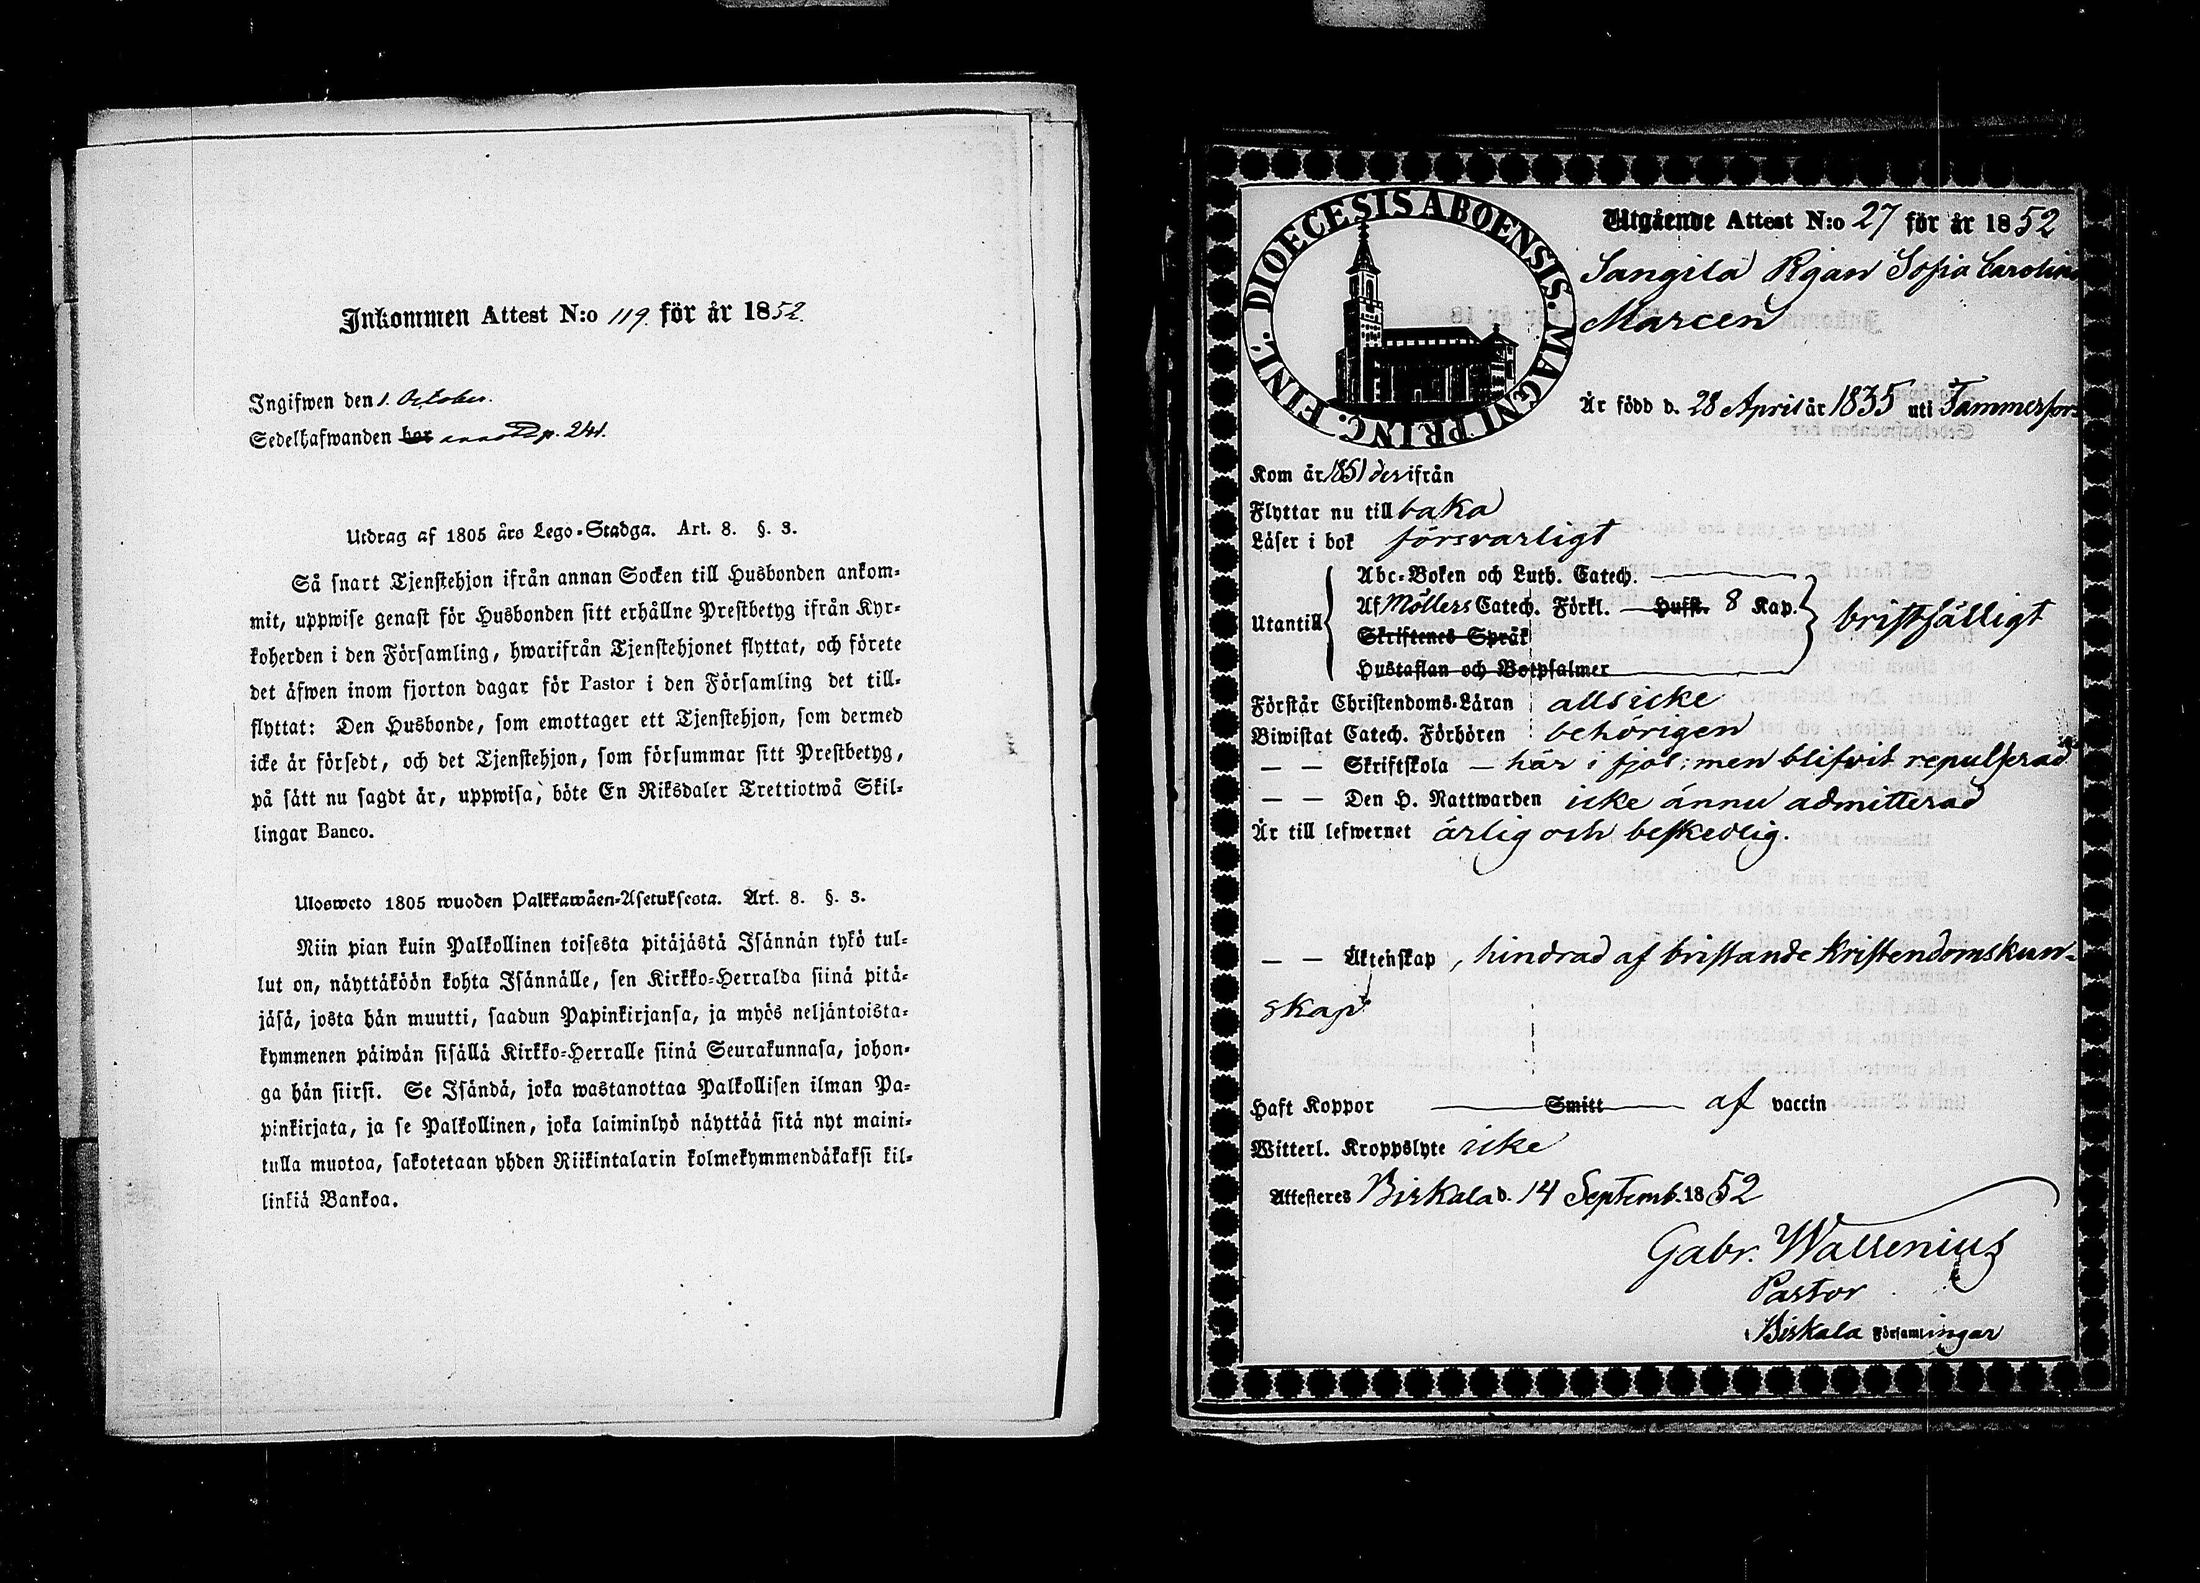 Inkommen Attest N:o 119. för år 1852.
Ingifwen den 1. October.
Sedelhafwanden bor annot p. 241.
Utdrag af 1805 års Lego-Stadga. Art. 8. §. 3.
Så snart Tjenstehjon ifrån annan Socken till Husbonden ankom-
mit, uppwise genast för Husbonden sitt erhållne Prestbetyg ifrån Kyr-
koherden i den Församling, hwarifrån Tjenstehjonet flyttat, och förete
det äfwen inom fjorton dagar för Pastor i den Församling det till-
flyttat: Den Husbonde, som emottager ett Tjenstehjon, som dermed
icke är försedt, och det Tjenstehjon, som försummar sitt Prestbetyg,
på sätt nu sagdt är, uppwisa, böte En Riksdaler Trettiotwå Skil-
lingar Banco.
Ulosweto 1805 wuoden Palkkawäen-Asetuksesta. Art. 8. §. 3.
Niin pian kuin Palkollinen toisesta pitäjästä Isännän tykö tul-
lut on, näyttäköön kohta Isännälle, sen Kirkko-Herralda siinä pitä-
jäsä, josta hän muutti, saadun Papinkirjansa, ja myös neljäntoista-
kymmenen päiwän sisällä Kirkko-Herralle siinä Seurakunnasa, johon-
ga hän siirsi. Se Isändä, joka wastanottaa Palkollisen ilman Pa-
pinkirjata, ja se Palkollinen, joka laiminlyö näyttää sitä nyt maini-
tulla muotoa, sakotetaan yhden Riikintalarin kolmekymmendäkaksi kil-
linkiä Bankoa.
DIOECESIS ABOENSIS. MAGNI PRINC. FINL.
Utgående Attest N:o 27 för år 1852
Pigan Sofia Carolina
Marcen
Är född d. 28 April år 1835 uti Tammerfors
Kom år 1851 derifrån
Flyttar nu tillbaka
Läser i bok försvarligt
Utantill
Abc-Boken och Luth. Catech.
Af Möllers Catech. Förkl. Hufst. 8 Kap.
Skriftenes Språk
Hustaflan och Botpsalmer
bristfälligt
Förstår Christendoms-Läran alls icke
Biwistat Catech. Förhören behörigen
— — Skriftskola — här i fjol; men blifvit repulserad
— — Den H. Nattwarden icke ännu admitterad
Är till lefwernet ärlig och beskedlig.
— — Äktenskap, hindrad af bristande Kristendomskun-
skap
Haft Koppor Smitt af vaccin
Witterl. Kroppslyte icke
Attesteres Birkala d. 14 Septemb. 1852
Gabr. Wallenius
Pastor
i Birkala Församlingar